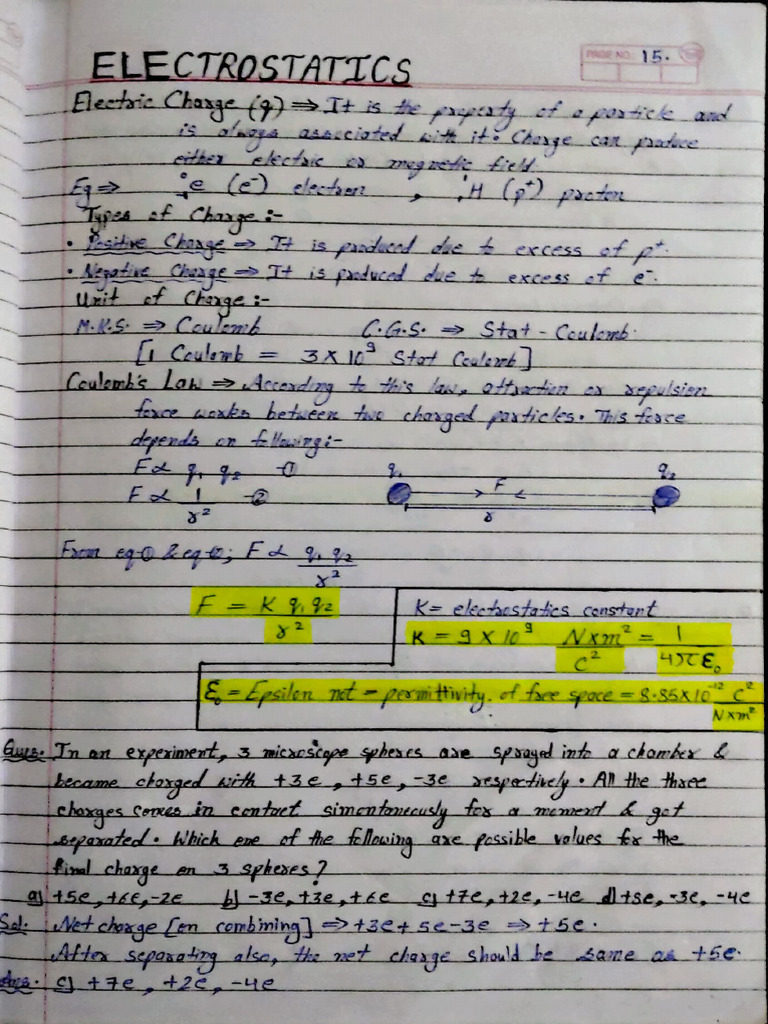 PAGE NO. 15.
ELECTROSTATICS
Electric Charge (q) ⇒ It is the property of a particle and
is always associated with it. Charge can produce
either electric or magnetic field.
Eg ⇒ °e (e⁻) electron , ¹H (p⁺) proton
Types of Charge :-
• Positive Charge ⇒ It is produced due to excess of p⁺.
• Negative Charge ⇒ It is produced due to excess of e⁻.
Unit of Charge :-
M.K.S. ⇒ Coulomb C.G.S. ⇒ Stat-Coulomb.
[1 Coulomb = 3 × 10⁹ Stat Coulomb]
Coulomb's Law ⇒ According to this law, attraction or repulsion
force works between two charged particles. This force
depends on following :-
F ∝ q₁ q₂ -①
q₁ F q₂
F ∝ 1/r² -②
r
From eq-① & eq-②; F ∝ q₁ q₂/r²
F = K q₁ q₂/r²
K = electrostatics constant
K = 9 × 10⁹ N×m²/C² = 1/4πε₀
ε₀ = Epsilon not = permittivity of free space = 8.85×10⁻¹² C²/N×m²
Ques. In an experiment, 3 microscope spheres are sprayed into a chamber &
became charged with +3e, +5e, -3e respectively. All the three
charges comes in contact simontaneously for a moment & get
separated. Which one of the following are possible values for the
final charge on 3 spheres?
a) +5e, +6e, -2e b) -3e, +3e, +6e c) +7e, +2e, -4e d) +5e, -3e, -4e
Sol. Net charge [on combining] ⇒ +3e + 5e - 3e ⇒ +5e.
After separating also, the net charge should be same as +5e.
Ans. c) +7e, +2e, -4e